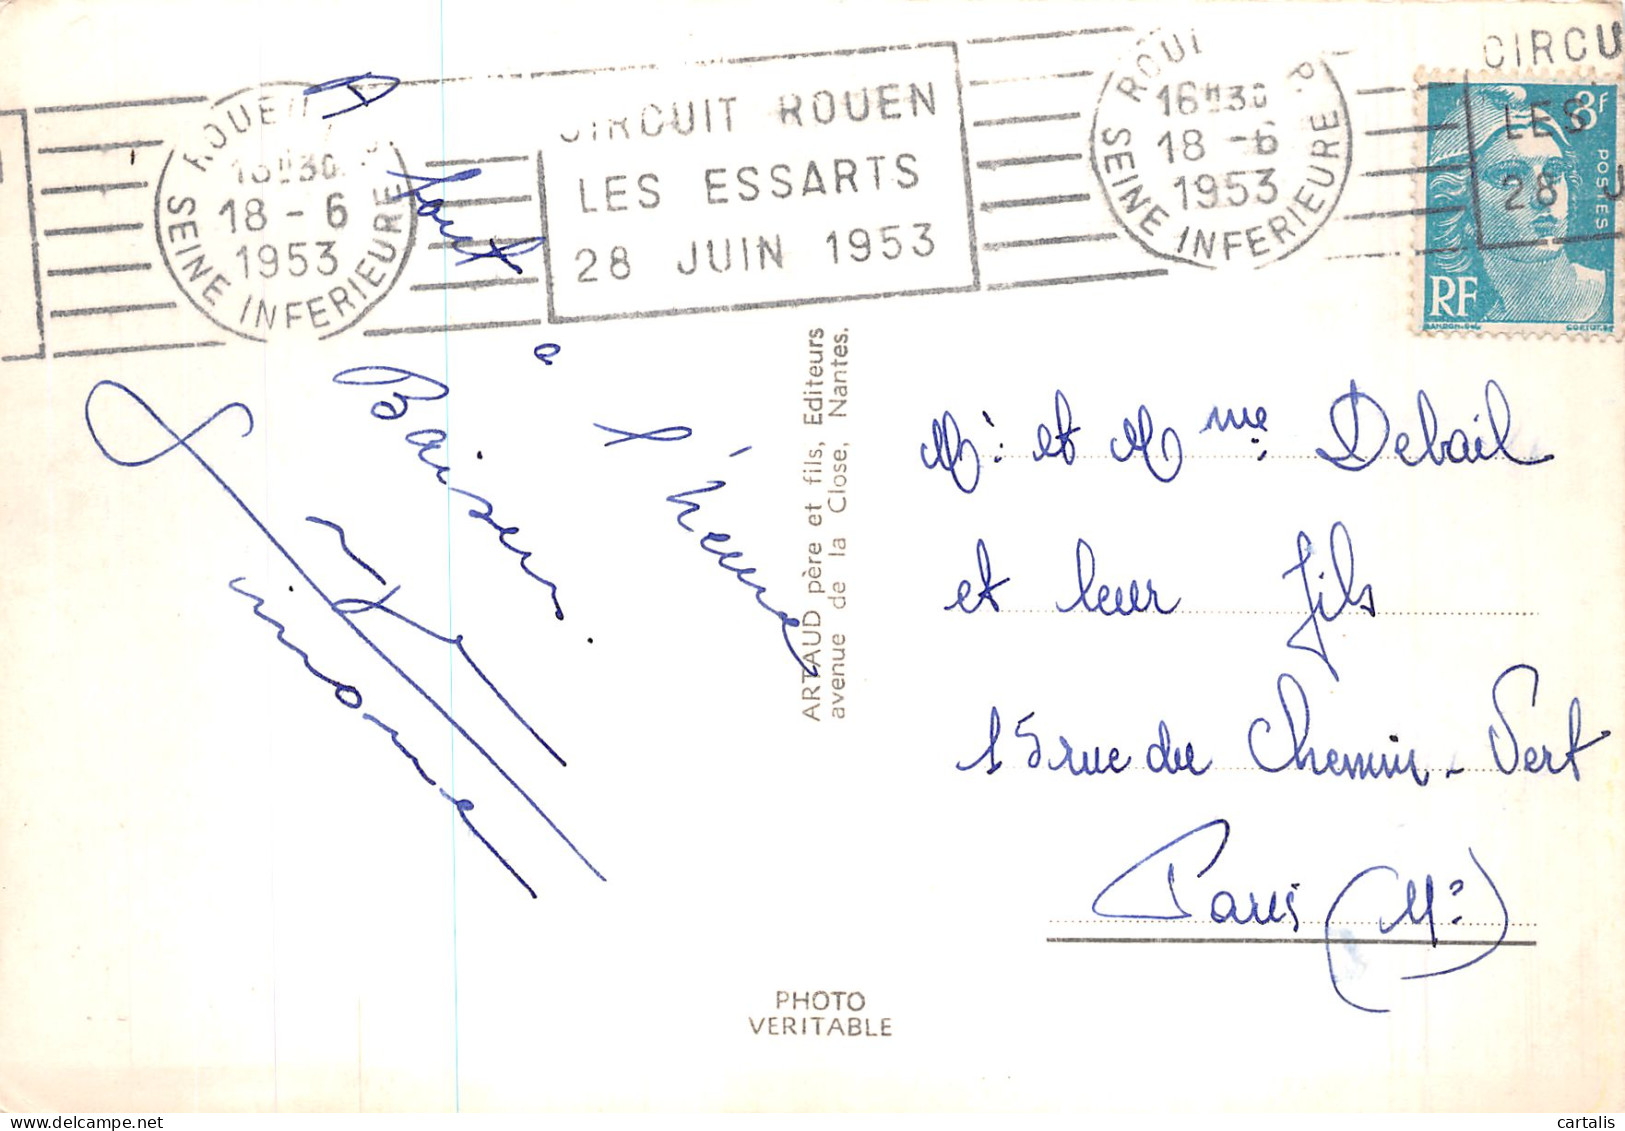 ROUEN
16H30
18 - 6
1953
SEINE INFERIEURE
CIRCUIT ROUEN
LES ESSARTS
28 JUIN 1953
ROUEN P.
16H30
18 - 6
1953
SEINE INFERIEURE
CIRCU
LES
28 J
8F
POSTES
RF
GANDON.DEL
A
à
l'heure
Baisers.
Simone
ARTAUD père et fils, Editeurs
avenue de la Close, Nantes.
Mr. et Mme. Debail
et leur fils
15 rue du Chemin-Vert
Paris (11e)
PHOTO
VERITABLE
cartalis